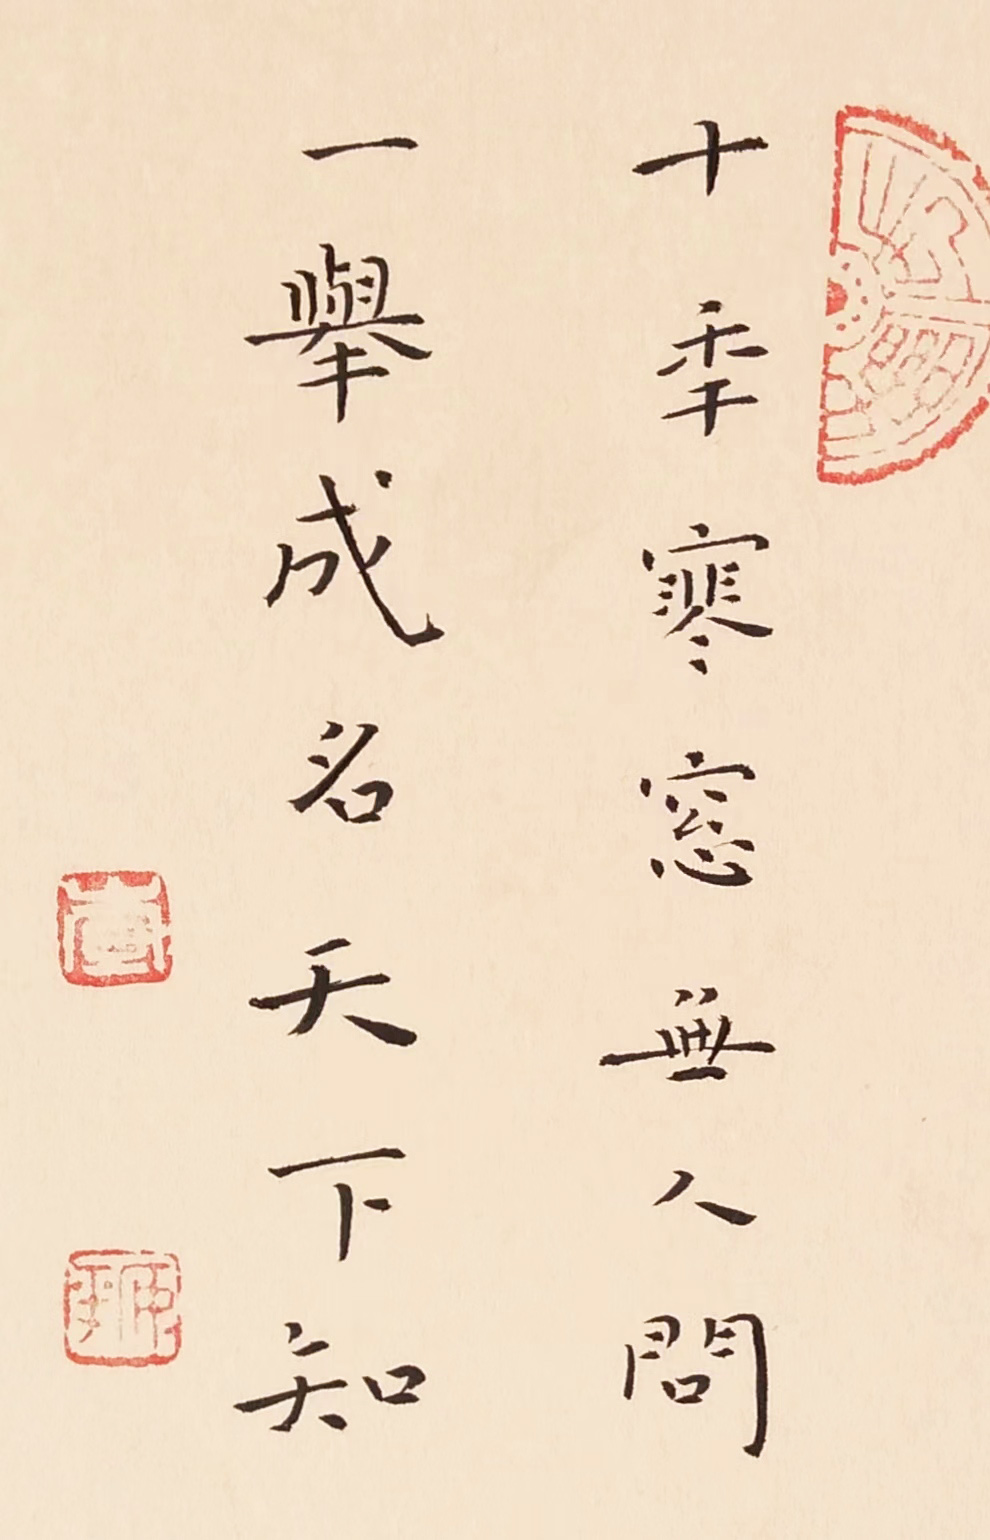 十秊寒窓無人問
一舉成名天下知